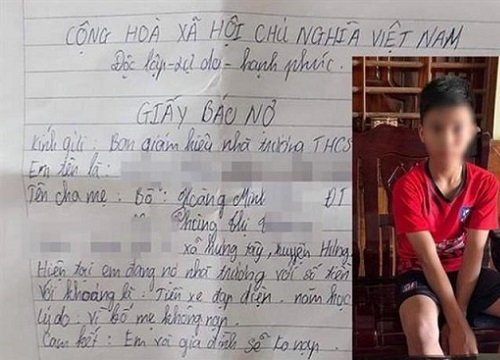 CỘNG HOÀ XÃ HỘI CHỦ NGHĨA VIỆT NAM
Độc lập - tự do - hạnh phúc.
GIẤY BÁO NỢ
Kính gửi: Ban giám hiệu nhà trường THCS
Em tên là:
Tên cha mẹ: Bố: Hoàng Minh ĐT
Phùng thị
xã Hưng tây, huyện Hưng
Hiện tại em đang nợ nhà trường với số tiền
Với khoảng là: Tiền xe đạp điện. năm học
Lý do: vì bố mẹ không nạp.
Cam kết: Em với gia đình sẽ lo nạp.